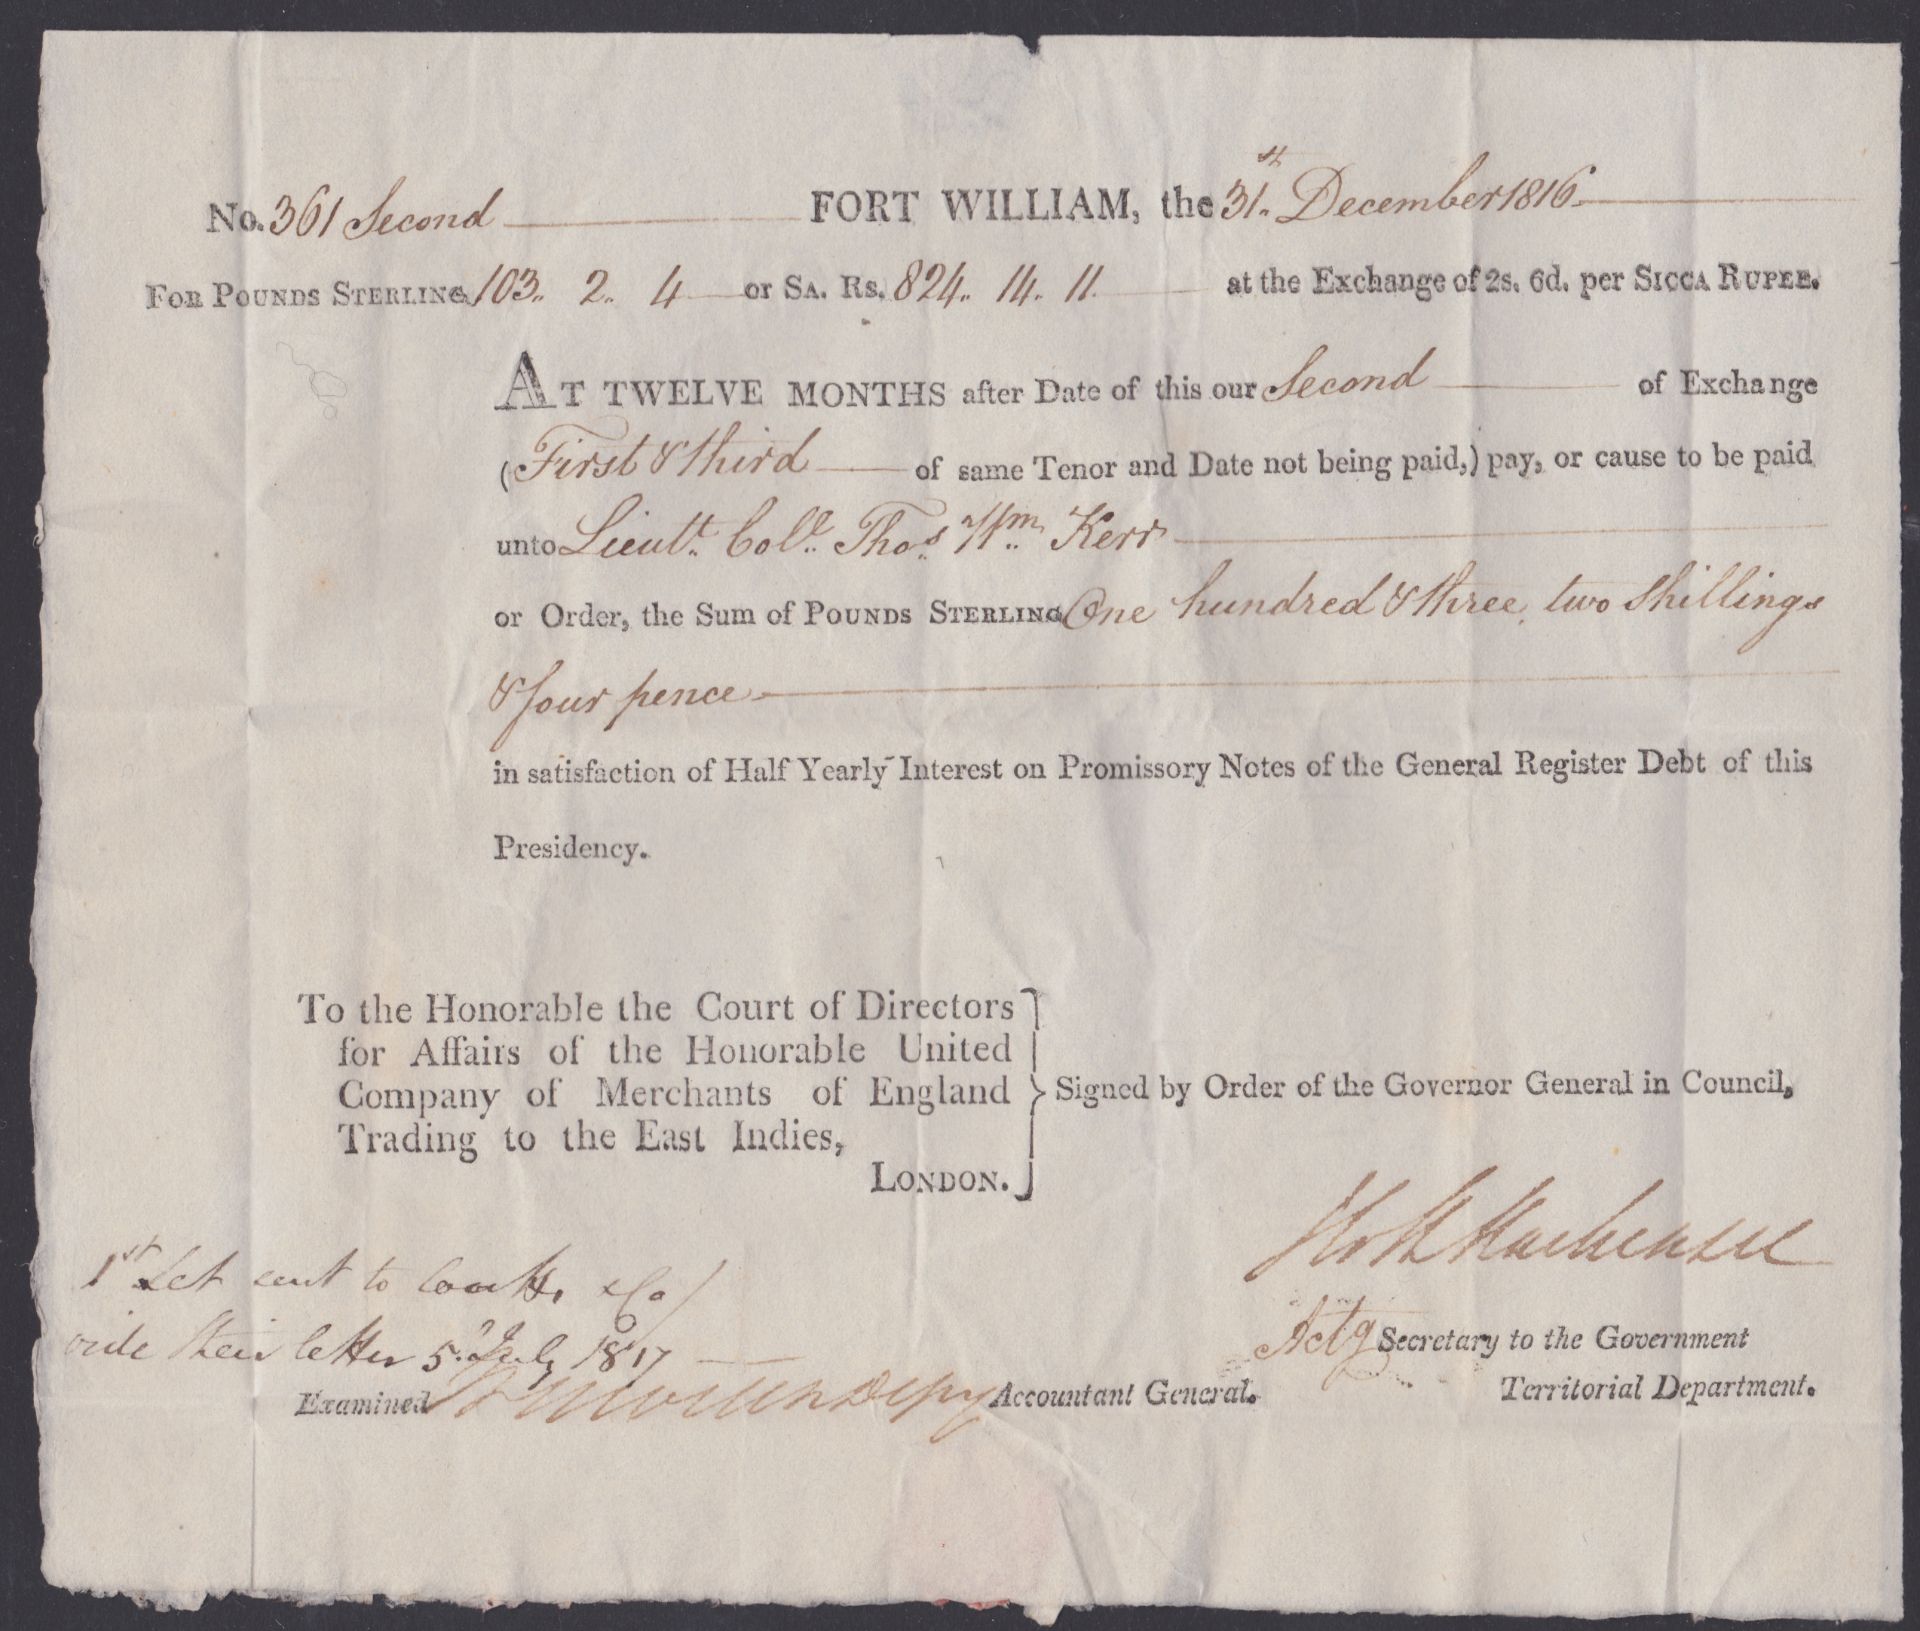 No. 361 Second FORT WILLIAM, the 31.st December 1816.
FOR POUNDS STERLING 103.. 2.. 4 or SA. RS. 824.. 14.. 11. at the Exchange of 2s. 6d. per SICCA RUPEE.
AT TWELVE MONTHS after Date of this our Second of Exchange
(First & third of same Tenor and Date not being paid,) pay, or cause to be paid
unto Lieut.t Col.l Tho.s W.m Kerr
or Order, the Sum of POUNDS STERLING One hundred & three, two shillings
& four pence
in satisfaction of Half Yearly Interest on Promissory Notes of the General Register Debt of this
Presidency.
To the Honorable the Court of Directors
for Affairs of the Honorable United
Company of Merchants of England
Trading to the East Indies,
LONDON.
Signed by Order of the Governor General in Council,
Holt Mackenzie
1st Set sent to Coutts, & Co/
vide their letter 5. July 1817
Actg Secretary to the Government
Territorial Department.
Examined Depy Accountant General.